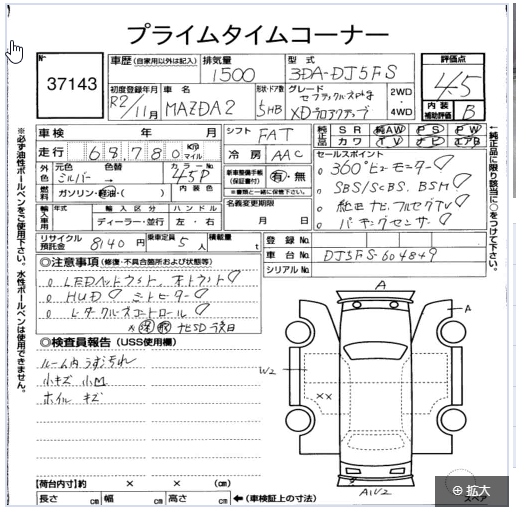 プライムタイムコーナー
No
37143
車歴 (自家用以外は記入)
排気量
1500
型式
3DA-DJ5FS
評価点
4.5
初度登録年月
R2/11月
車名
MAZDA2
形状・ドア数
5HB
グレード
XDプロアクティブ
2WD
・
4WD
内装
補助評価
B
車検 年 月
シフト FAT
純正品
SR 純AW PS PW
カワ TV ナビ エアB
走行 68,780 Km マイル
冷房 AAC
セールスポイント
360°ビューモニター
SBS/SCBS. BSM
純正ナビ フルセグTV
パーキングセンサー
外色
元色 シルバー → 色替
カラーNo.
45P
燃料
ガソリン・軽油・( )
内装色
新車整備手帳
(保証書付)
有・無
※書類と一緒に保管下さい。
名義変更期限
月 日
輸入車用
年式
輸入区分
ディーラー・並行
ハンドル
左・右
リサイクル
預託金
8140円
乗車定員
5人
積載量
t
登録No.
車台No.
DJ5FS-604849
シリアルNo.
◎注意事項 (修復・不具合箇所および状態等)
HUD シートヒーター
レーダークルーズコントロール
◎検査員報告 (USS使用欄)
ルーム内うすごれ
小キズ 小凹
ホイル キズ
A
A
W2
××
A1W2
スペア
【荷台内寸】約 × × (cm)
長さ cm 幅 cm 高さ cm ←(車検証上の寸法)
※必ず油性ボールペンをご使用下さい。水性ボールペンは使用できません。
←純正品に限り該当に○をつけて下さい。
拡大